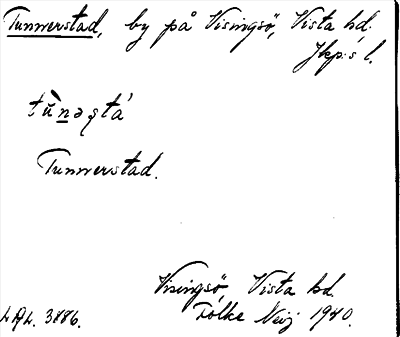 Tunnerstad, by på Visingsö, Vista hd.
Jkp:s l.
tùnəstá
Tunnerstad.
Visingsö, Vista hd.
L.A.L. 3886. Folke Neij 1940.